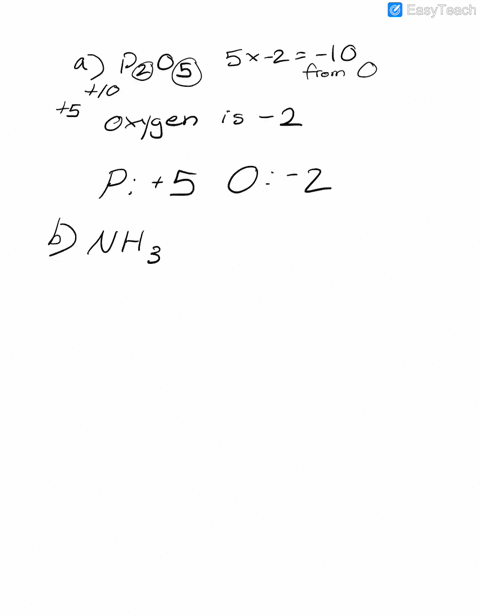 EasyTeach
a) P2O5 5 x -2 = -10
+10 from O
+5 oxygen is -2
P: +5 O: -2
b) NH3